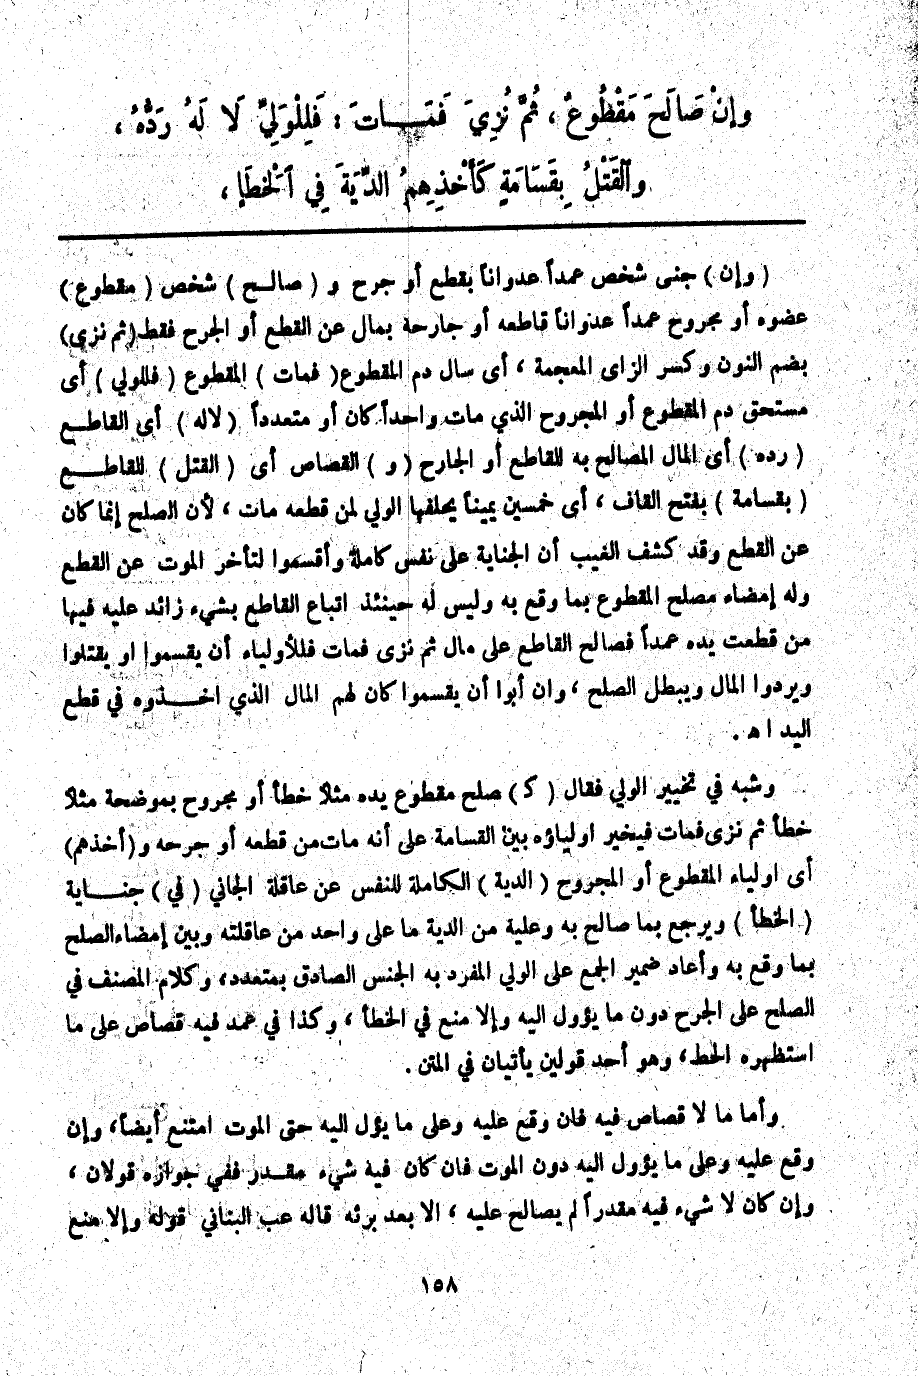 وإنْ صَالَحَ مَقْطُوعٌ ، ثُمَّ نُزِيَ فَمَـــاتَ : فَلِلْوَلِيِّ لَا لَهُ رَدُّهُ ،
وٱلْقَتْلُ بِقَسَامَةٍ كَأَخْذِهِمُ الدِّيَةَ فِي ٱلْخَطَإِ ،
( وإن ) جنى شخص عمداً عدواناً بقطع أو جرح و ( صالـح ) شخص ( مقطوع )
عضوه أو مجروح عمداً عدواناً قاطعه أو جارحة بمال عن القطع أو الجرح فقط (ثم نزي)
بضم النون وكسر الزاى المعجمة ، أى سال دم المقطوع ( فمات ) المقطوع ( فللولي ) أى
مستحق دم المقطوع أو المجروح الذي مات واحداً كان أو متعدداً ( لاله ) أى القاطـع
( رده ) أى المال المصالح به للقاطع أو الجارح ( و ) القصاص أى ( القتل ) للقاطـــع
( بقسامة ) بفتح القاف ، أى خمسين يميناً يحلفها الولي لمن قطعه مات ، لأن الصلح إنما كان
عن القطع وقد كشف الغيب أن الجناية على نفس كاملة وأقسموا لتأخر الموت عن القطع
وله إمضاء مصلح المقطوع بما وقع به وليس له حينئذ اتباع القاطع بشيء زائد عليه فيها
من قطعت يده عمداً فصالح القاطع على مال ثم نزى فمات فللأولياء أن يقسموا او يقتلوا
ويردوا المال ويبطل الصلح ، وان أبوا أن يقسموا كان لهم المال الذي اخـــذوه في قطع
اليد ا هـ .
وشبه في تخيير الولي فقال ( كـ ) صلح مقطوع يده مثلا خطأ أو مجروح بموضحة مثلا
خطأ ثم نزى فمات فيخير اولياؤه بين القسامة على أنه مات من قطعه أو جرحه و (أخذهم)
أى اولياء المقطوع أو المجروح ( الدية ) الكاملة للنفس عن عاقلة الجاني ( في ) جنـــاية
( الخطأ ) ويرجع بما صالح به وعلية من الدية ما على واحد من عاقلته وبين إمضاء الصلح
بما وقع به وأعاد ضمير الجمع على الولي المفرد به الجنس الصادق بمتعدد، وكلام المصنف في
الصلح على الجرح دون ما يؤول اليه وإلا منع في الخطأ ، وكذا في عمد فيه قصاص على ما
استظهره الحط، وهو أحد قولين يأتيان في المتن .
وأما ما لا قصاص فيه فان وقع عليه وعلى ما يؤل اليه حتى الموت امتنع أيضاً، وإن
وقع عليه وعلى ما يؤول اليه دون الموت فان كان فيه شيء مقـدر ففي جوازه قولان ،
وإن كان لا شيء فيه مقدراً لم يصالح عليه ، الا بعد برئه قاله عب البناني قوله وإلا منع
١٥٨